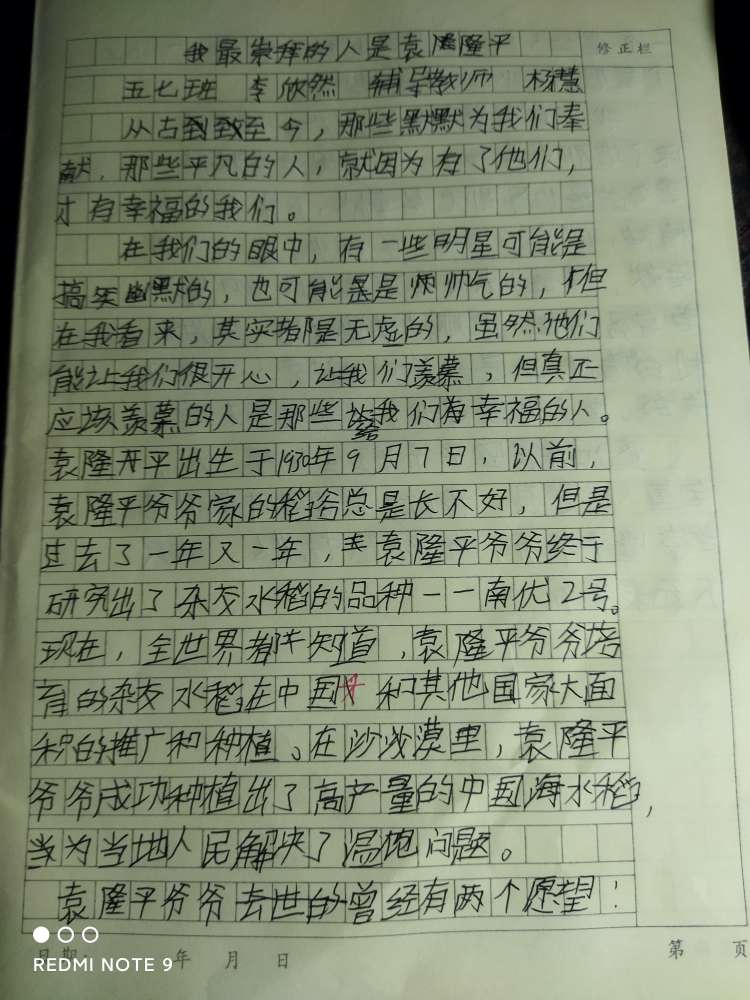 我最崇拜的人是袁隆平
修正栏
五七班 李欣然 辅导教师 杨慧
从古到至今，那些默默为我们奉
献，那些平凡的人，就因为有了他们，
才有幸福的我们。
在我们的眼中，有一些明星可能是
搞笑幽默的，也可能是帅气的，但
在我看来，其实都是无虚的，虽然他们
能让我们很开心，让我们羡慕，但真正
应该羡慕的人是那些给我们幸福的人。
袁隆平出生于1930年9月7日，以前，
袁隆平爷爷家的稻谷总是长不好，但是
过去了一年又一年，袁隆平爷爷终于
研究出了杂交水稻的品种一一南优2号。
现在，全世界都知道，袁隆平爷爷培
育的杂交水稻在中国和其他国家大面
积的推广和种植。在沙漠里，袁隆平
爷爷成功种植出了高产量的中国海水稻，
为当地人民解决了温饱问题。
袁隆平爷爷去世的曾经有两个愿望：
日期 年 月 日
第 页
REDMI NOTE 9